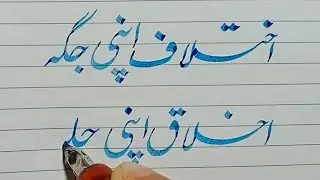 اختلاف اپنی جگہ
اخلاق اپنی جل